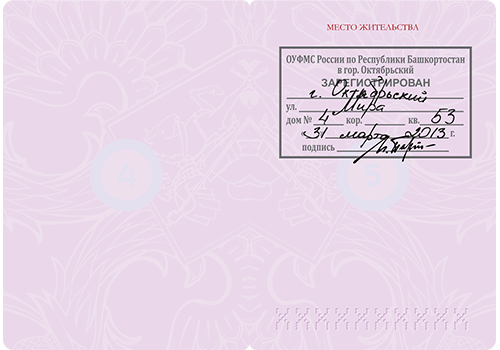 МЕСТО ЖИТЕЛЬСТВА
ОУФМС России по Республики Башкортостан
в гор. Октябрьский
ЗАРЕГИСТРИРОВАН
г. Октябрьский
ул. Мира
дом № 4 кор. кв. 53
с 31 марта 2013 г.
подпись
4 5